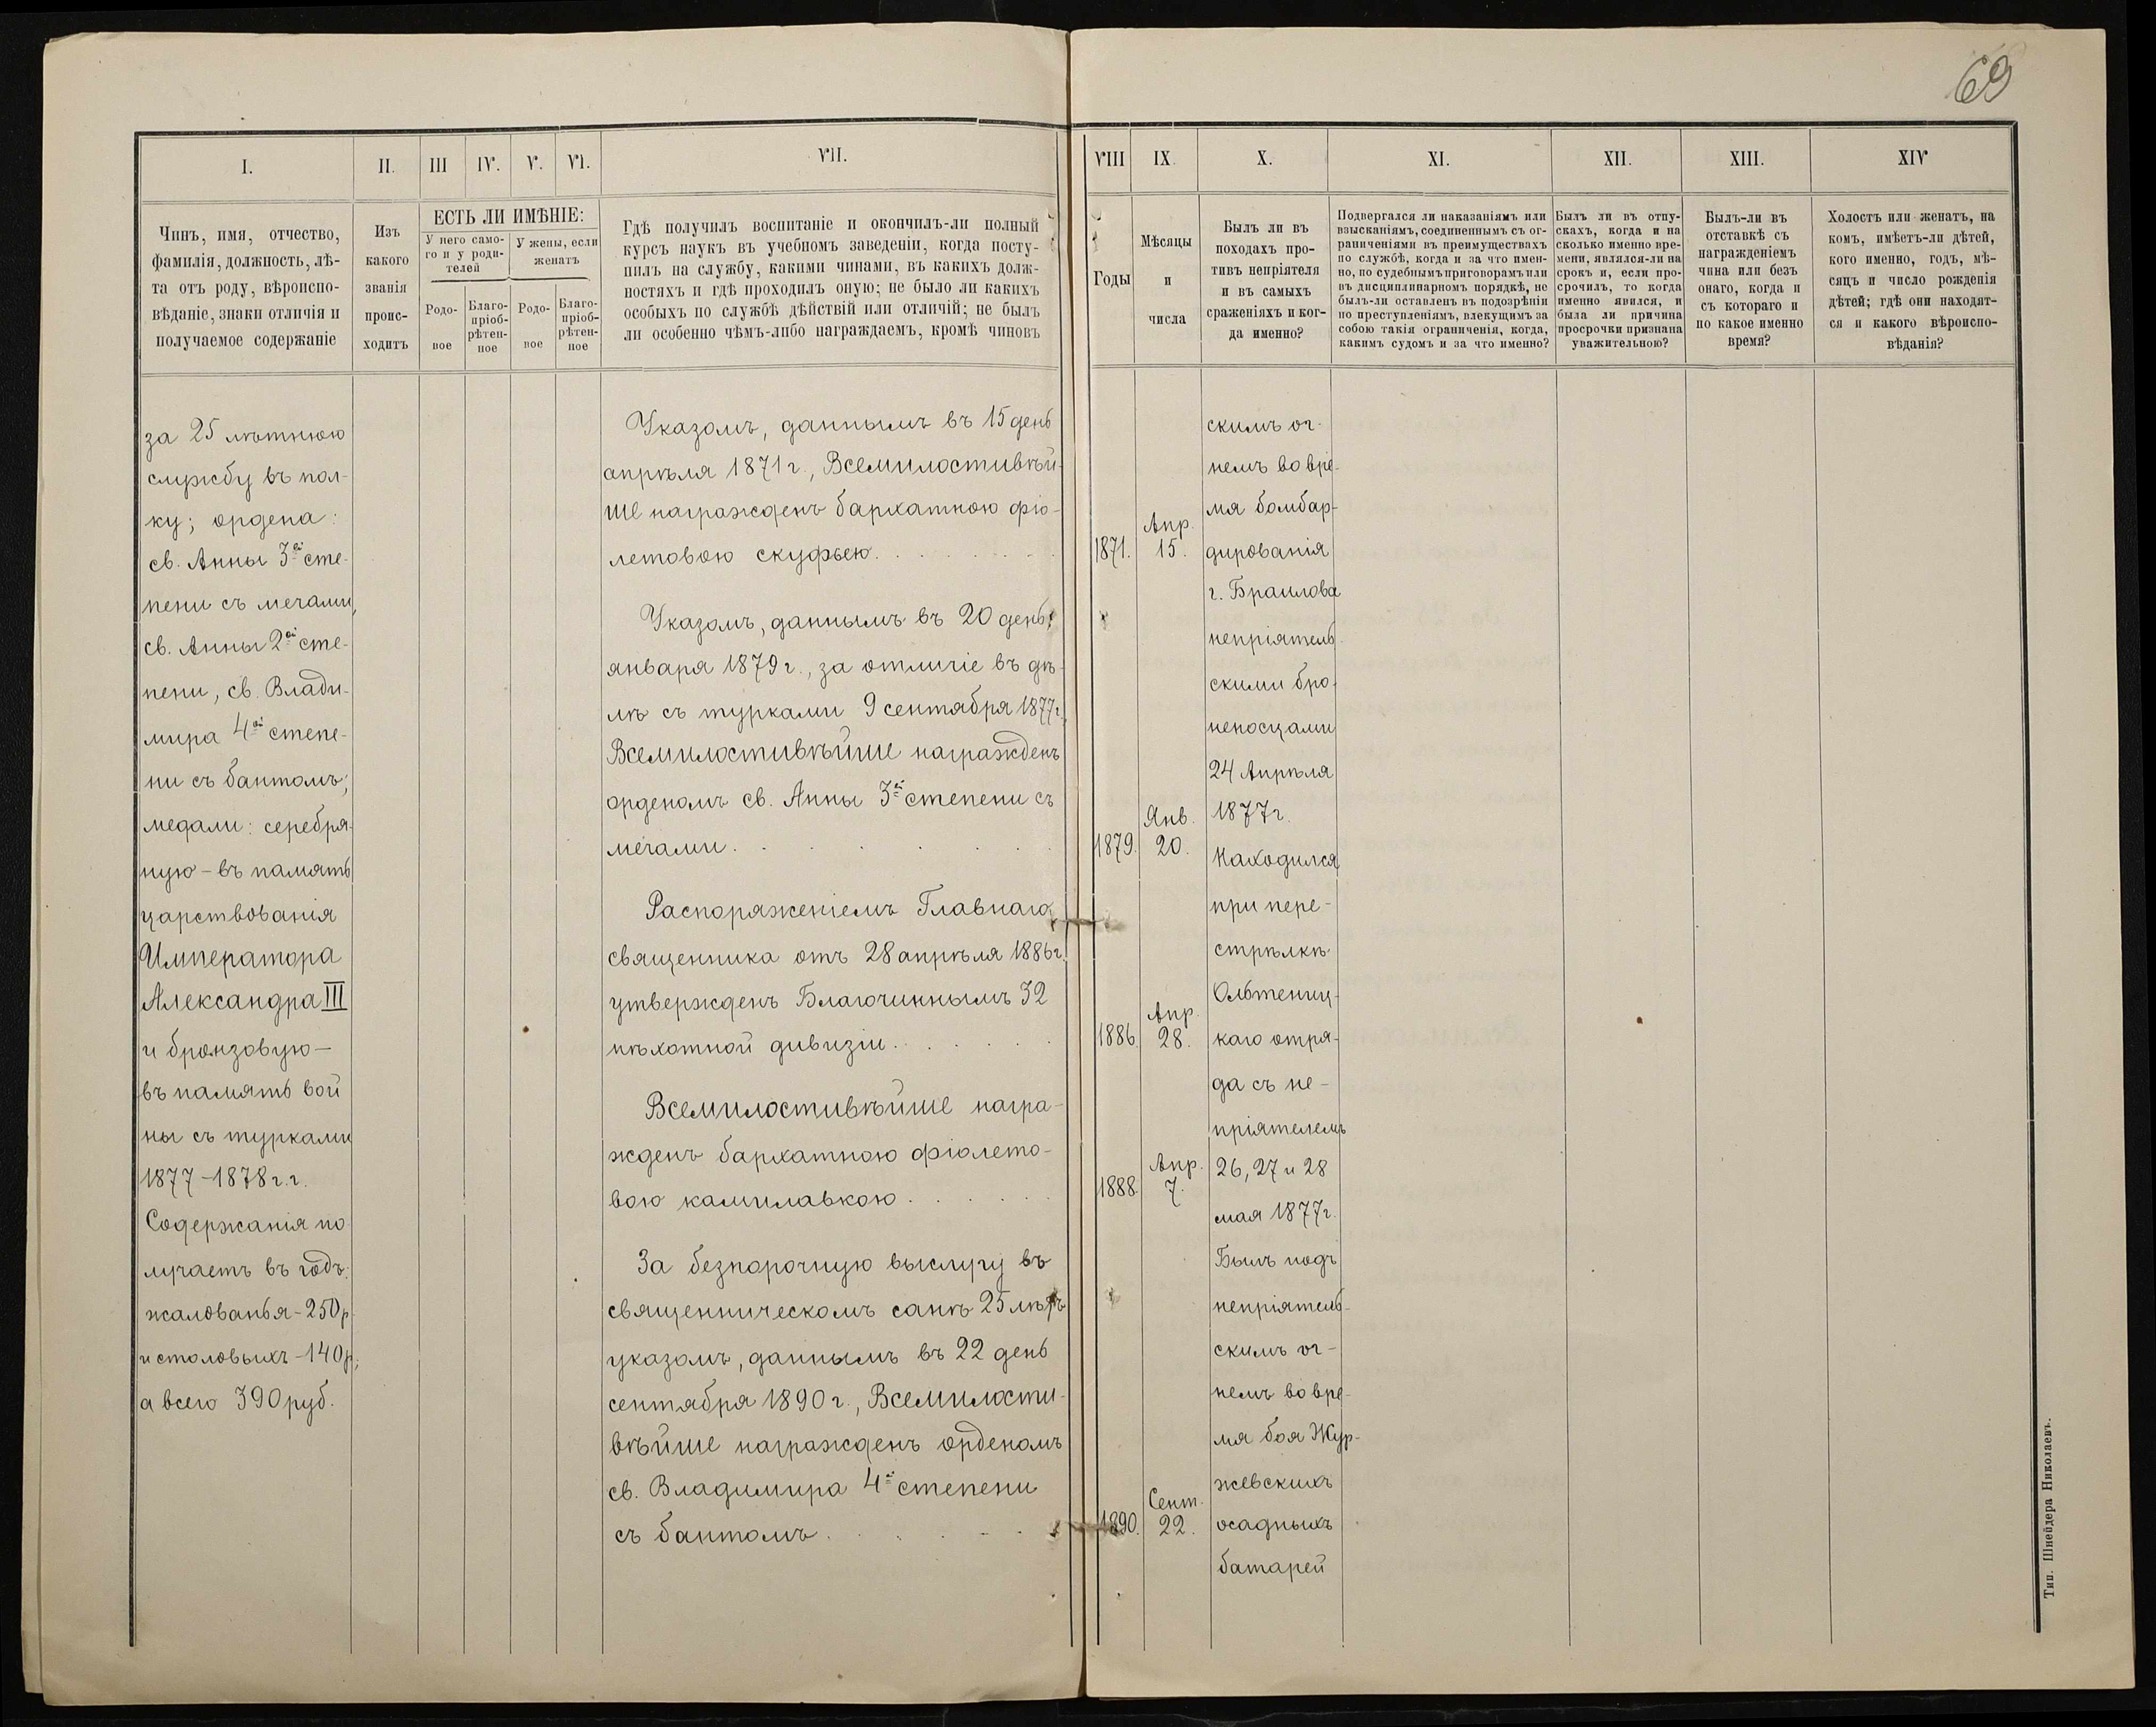 69
I.
II.
III
IV.
V.
VI.
VII.
VIII
IX.
X.
XI.
XII.
XIII.
XIV
Чинъ, имя, отчество,
фамилія, должность, лѣ-
та отъ роду, вѣроиспо-
вѣданіе, знаки отличія и
получаемое содержаніе
Изъ
какого
званія
проис-
ходитъ
ЕСТЬ ЛИ ИМѢНІЕ:
У него само-
го и у роди-
телей
У жены, если
женатъ
Родо-
вое
Благо-
пріоб-
рѣтен-
ное
Родо-
вое
Благо-
пріоб-
рѣтен-
ное
Гдѣ получилъ воспитаніе и окончилъ-ли полный
курсъ наукъ въ учебномъ заведеніи, когда посту-
пилъ на службу, какими чинами, въ какихъ долж-
ностяхъ и гдѣ проходилъ оную; не было ли какихъ
особыхъ по службѣ дѣйствій или отличій; не былъ
ли особенно чѣмъ-либо награждаемъ, кромѣ чиновъ
Годы
Мѣсяцы
и
числа
Былъ ли въ
походахъ про-
тивъ непріятеля
и въ самыхъ
сраженіяхъ и ког-
да именно?
Подвергался ли наказаніямъ или
взысканіямъ, соединеннымъ съ ог-
раниченіями въ преимуществахъ
по службѣ, когда и за что имен-
но, по судебнымъ приговорамъ или
въ дисциплинарномъ порядкѣ, не
былъ-ли оставленъ въ подозрѣніи
по преступленіямъ, влекущимъ за
собою такія ограниченія, когда,
какимъ судомъ и за что именно?
Былъ ли въ отпу-
скахъ, когда и на
сколько именно вре-
мени, являлся-ли на
срокъ и, если про-
срочилъ, то когда
именно явился, и
была ли причина
просрочки признана
уважительною?
Былъ-ли въ
отставкѣ съ
награжденіемъ
чина или безъ
онаго, когда и
съ котораго и
по какое именно
время?
Холостъ или женатъ, на
комъ, имѣетъ-ли дѣтей,
кого именно, годъ, мѣ-
сяцъ и число рожденія
дѣтей; гдѣ они находят-
ся и какого вѣроиспо-
вѣданія?
за 25 лѣтнюю
службу въ пол-
ку; ордена:
св. Анны 3ей сте-
пени съ мечами,
св. Анны 2ой сте-
пени, св. Влади-
мира 4ой степе-
ни съ бантомъ;
медали: серебря-
ную – въ память
царствованія
Императора
Александра III
и бронзовую –
въ память вой
ны съ турками
1877–1878 г.г.
Содержанія по
лучаетъ въ годъ:
жалованья – 250 р.
и столовыхъ – 140 р.,
а всего 390 руб.
Указомъ, даннымъ въ 15 день
апрѣля 1871 г., Всемилостивѣй-
ше награжденъ бархатною фіо-
летовою скуфьею . . . . . . . .
Указомъ, даннымъ въ 20 день
января 1879 г., за отличіе въ дѣ-
лѣ съ турками 9 сентября 1877 г.,
Всемилостивѣйше награжденъ
орденомъ св. Анны 3ей степени съ
мечами . . . . . . . .
Распоряженіемъ Главнаго
священника отъ 28 апрѣля 1886 г.
утвержденъ Благочиннымъ 32
пѣхотной дивизіи . . . . . .
Всемилостивѣйше награ-
жденъ бархатною фіолето-
вою камилавкою . . . . . .
За безпорочную выслугу въ
священническомъ санѣ 25 лѣтъ
указомъ, даннымъ въ 22 день
сентября 1890 г., Всемилости-
вѣйше награжденъ орденомъ
св. Владимира 4й степени
съ бантомъ . . . . . .
1871.
Апр.
15.
1879.
Янв.
20.
1886.
Апр.
28.
1888.
Апр.
7.
1890.
Сент.
22.
скимъ ог-
немъ во вре-
мя бомбар-
дированія
г. Браилова
непріятель-
скими бро-
неносцами
24 Апрѣля
1877 г.
Находился
при пере-
стрѣлкѣ
Ольтениц-
каго отря-
да съ не-
пріятелемъ
26, 27 и 28
мая 1877 г.
Былъ подъ
непріятель-
скимъ ог-
немъ во вре-
мя боя Жур-
жевскихъ
осадныхъ
батарей
Тип. Шнейдера Николаевъ.